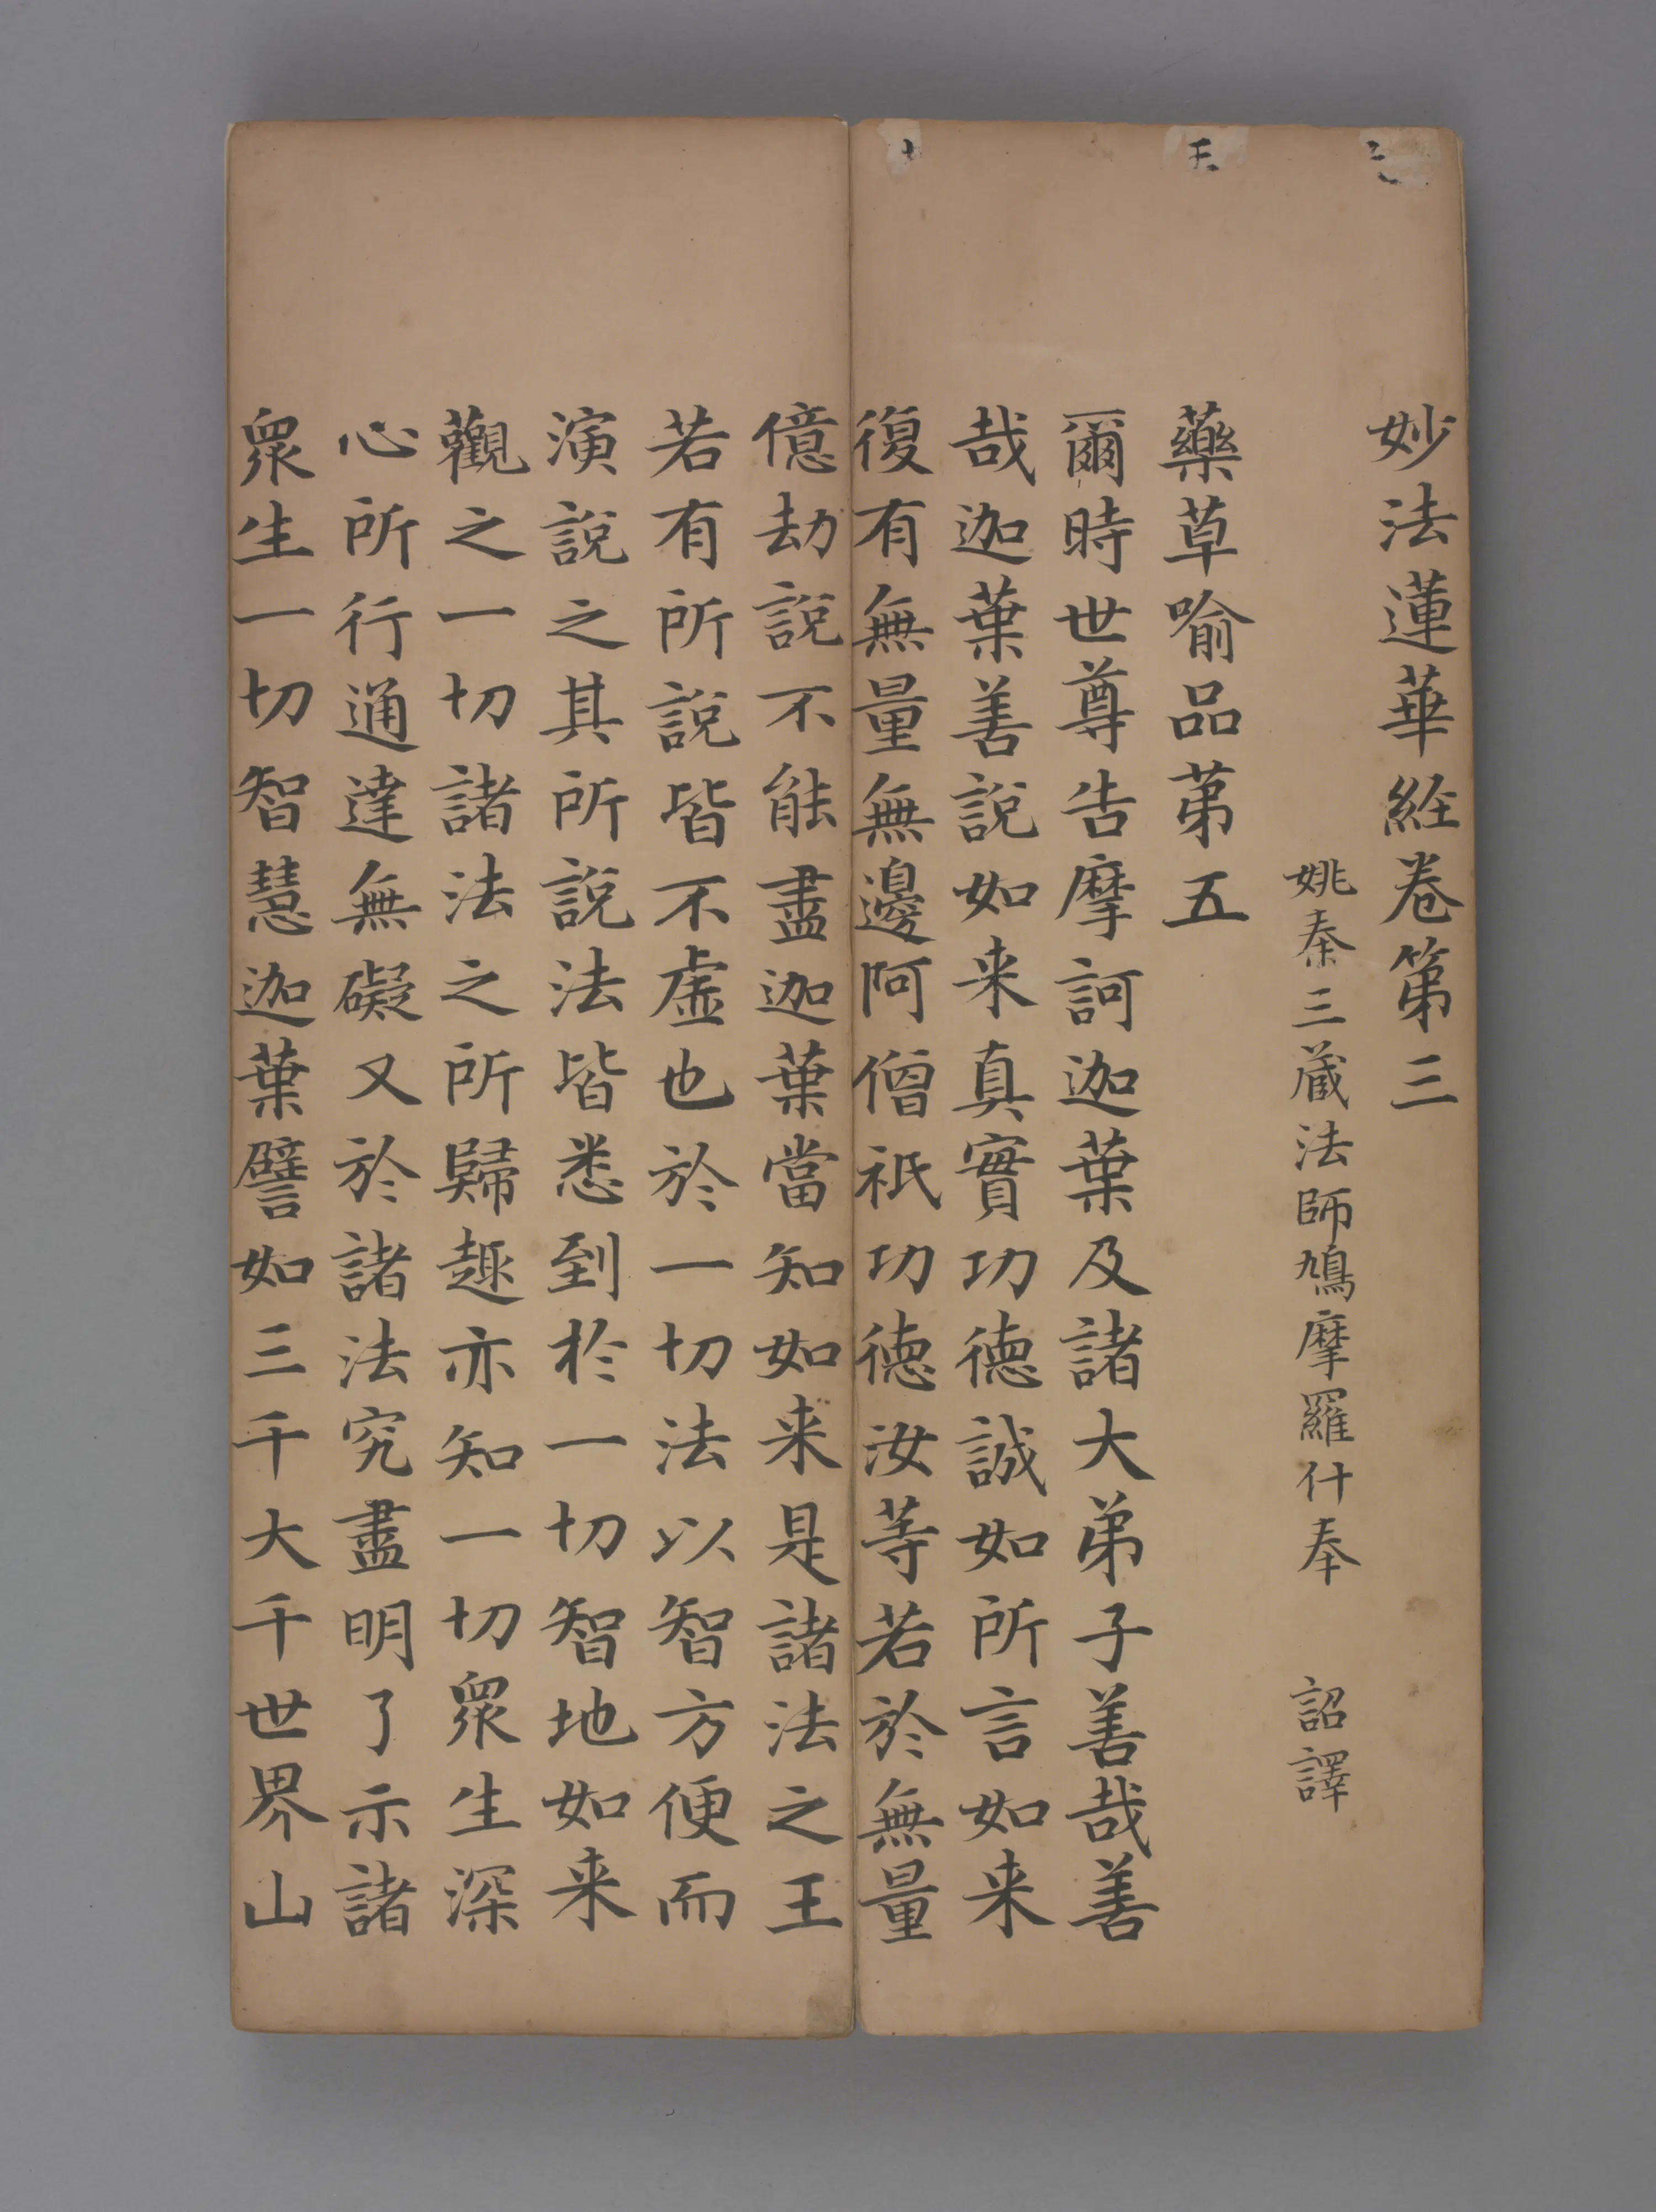 妙法蓮華経卷第三
姚秦三蔵法師鳩摩羅什奉 詔譯
藥草喻品苐五
爾時世尊告摩訶迦葉及諸大弟子善哉善
哉迦葉善說如来真實功德誠如所言如来
復有無量無邊阿僧祇功德汝等若於無量
億劫說不能盡迦葉當知如来是諸法之王
若有所說皆不虛也於一切法以智方便而
演說之其所說法皆悉到於一切智地如来
觀之一切諸法之所歸趣亦知一切眾生深
心所行通達無礙又於諸法究盡明了示諸
眾生一切智慧迦葉譬如三千大千世界山